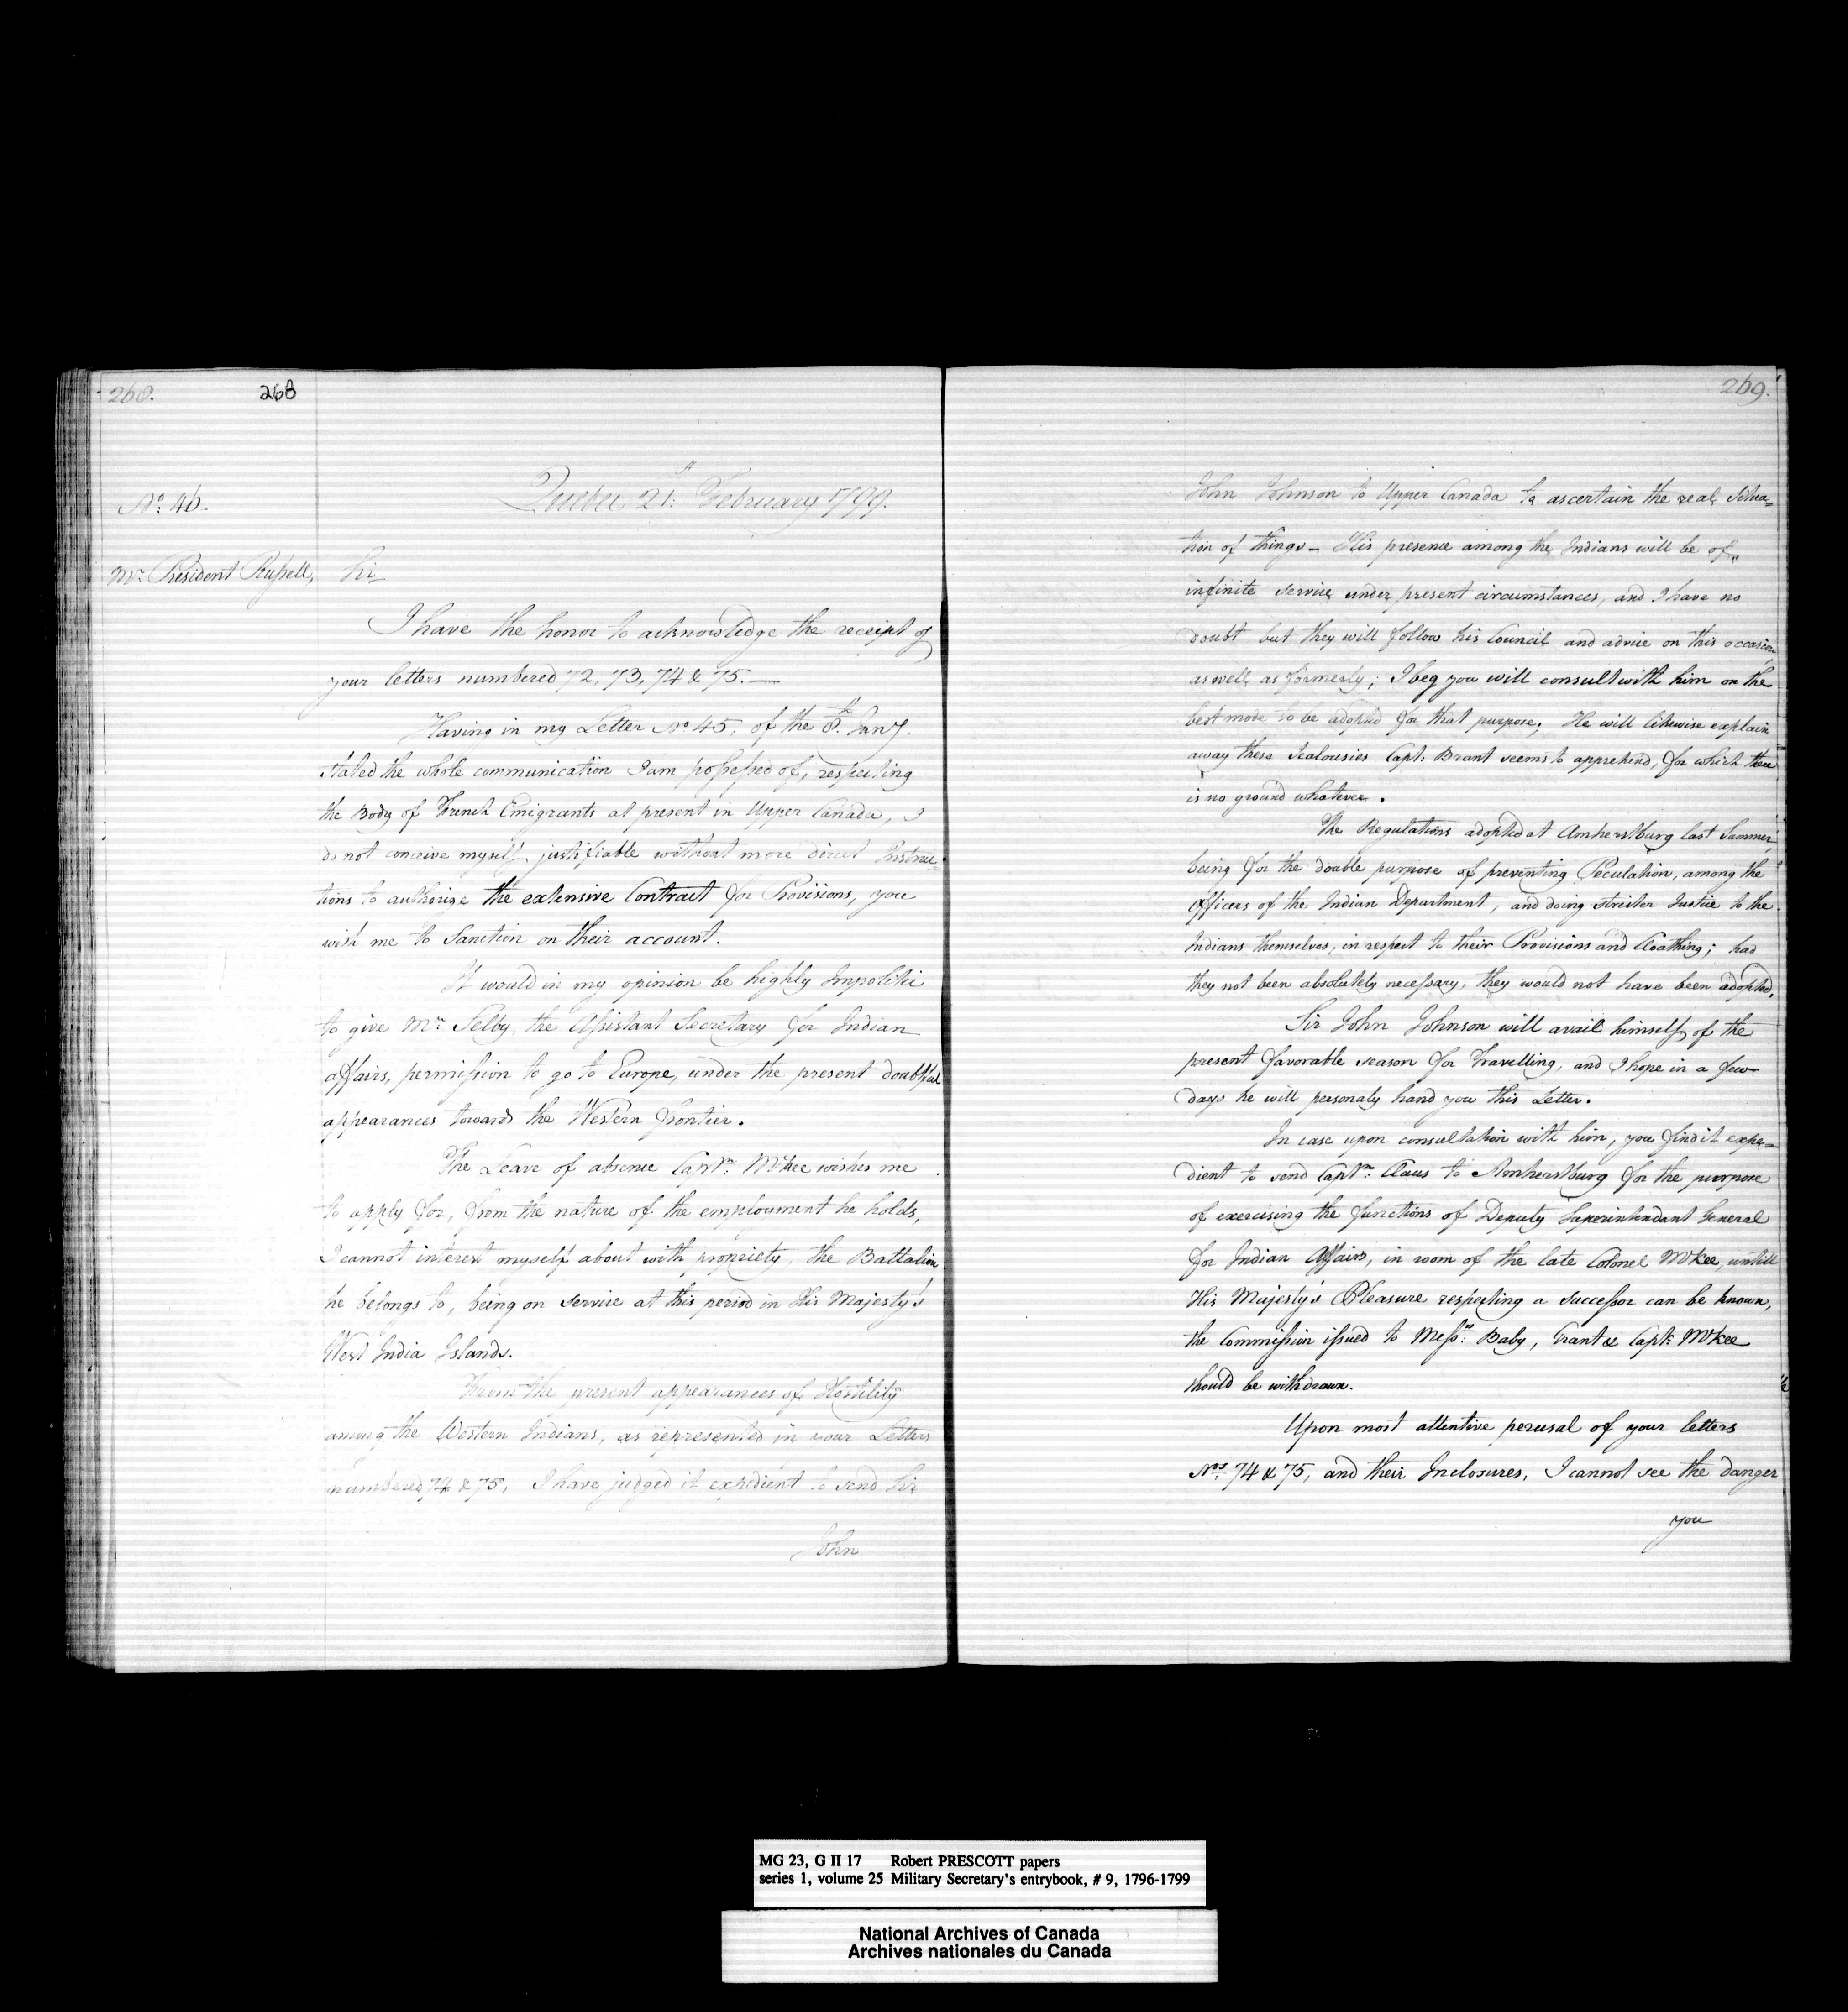 268.
268
Nº. 46.
Quebec 21st. February 1799.
Mr. President Russell,
Sir
I have the honor to acknowledge the receipt of
your letters numbered 72, 73, 74 & 75.—
Having in my Letter Nº 45, of the 8th. Jany.
stated the whole communication I am possessed of, respecting
the Body of French Emigrants at present in Upper Canada, I
do not conceive myself justifiable without more direct Instruc=
tions to authorize the extensive Contract for Provisions, you
wish me to Sanction on their account.
It would in my opinion be highly Impolitic
to give Mr. Selby, the Assistant Secretary for Indian
affairs, permission to go to Europe, under the present doubtful
appearances towards the Western frontier.
The Leave of absence Captn. McKee wishes me
to apply for, from the nature of the employment he holds,
I cannot interest myself about with propriety, the Battalion
he belongs to, being on service at this period in His Majesty's
West India Islands.
From the present appearances of Hostility
among the Western Indians, as represented in your Letters
numbered 74 & 75, I have judged it expedient to send Sir
John
269.
John Johnson to Upper Canada to ascertain the real Situa=
tion of things – His presence among the Indians will be of
infinite service under present circumstances, and I have no
doubt but they will follow his Council and advice on this occasion
as well as formerly; I beg you will consult with him on the
best mode to be adopted for that purpose; He will likewise explain
away these Jealousies Capt: Brant seems to apprehend, for which there
is no ground whatever.
The Regulations adopted at Amherstburg last Summer,
being for the double purpose of preventing Peculation, among the
Officers of the Indian Department, and doing stricter Justice to the
Indians themselves, in respect to their Provisions and Cloathing; had
they not been absolutely necessary, they would not have been adopted.
Sir John Johnson will avail himself of the
present favorable season for Travelling, and I hope in a few
days he will personaly hand you this Letter.
In case upon consultation with him, you find it expe=
dient to send Captn: Claus to Amherstburg for the purpose
of exercising the functions of Deputy Superintendant General
for Indian Affairs, in room of the late Colonel McKee, untill
His Majesty's Pleasure respecting a successor can be known,
the Commission issued to Messrs: Baby, Grant & Capt: McKee
should be withdrawn.
Upon most attentive perusal of your letters
Nos. 74 & 75, and their Inclosures, I cannot see the danger
you
MG 23, G II 17 Robert PRESCOTT papers
series 1, volume 25 Military Secretary's entrybook, # 9, 1796-1799
National Archives of Canada
Archives nationales du Canada